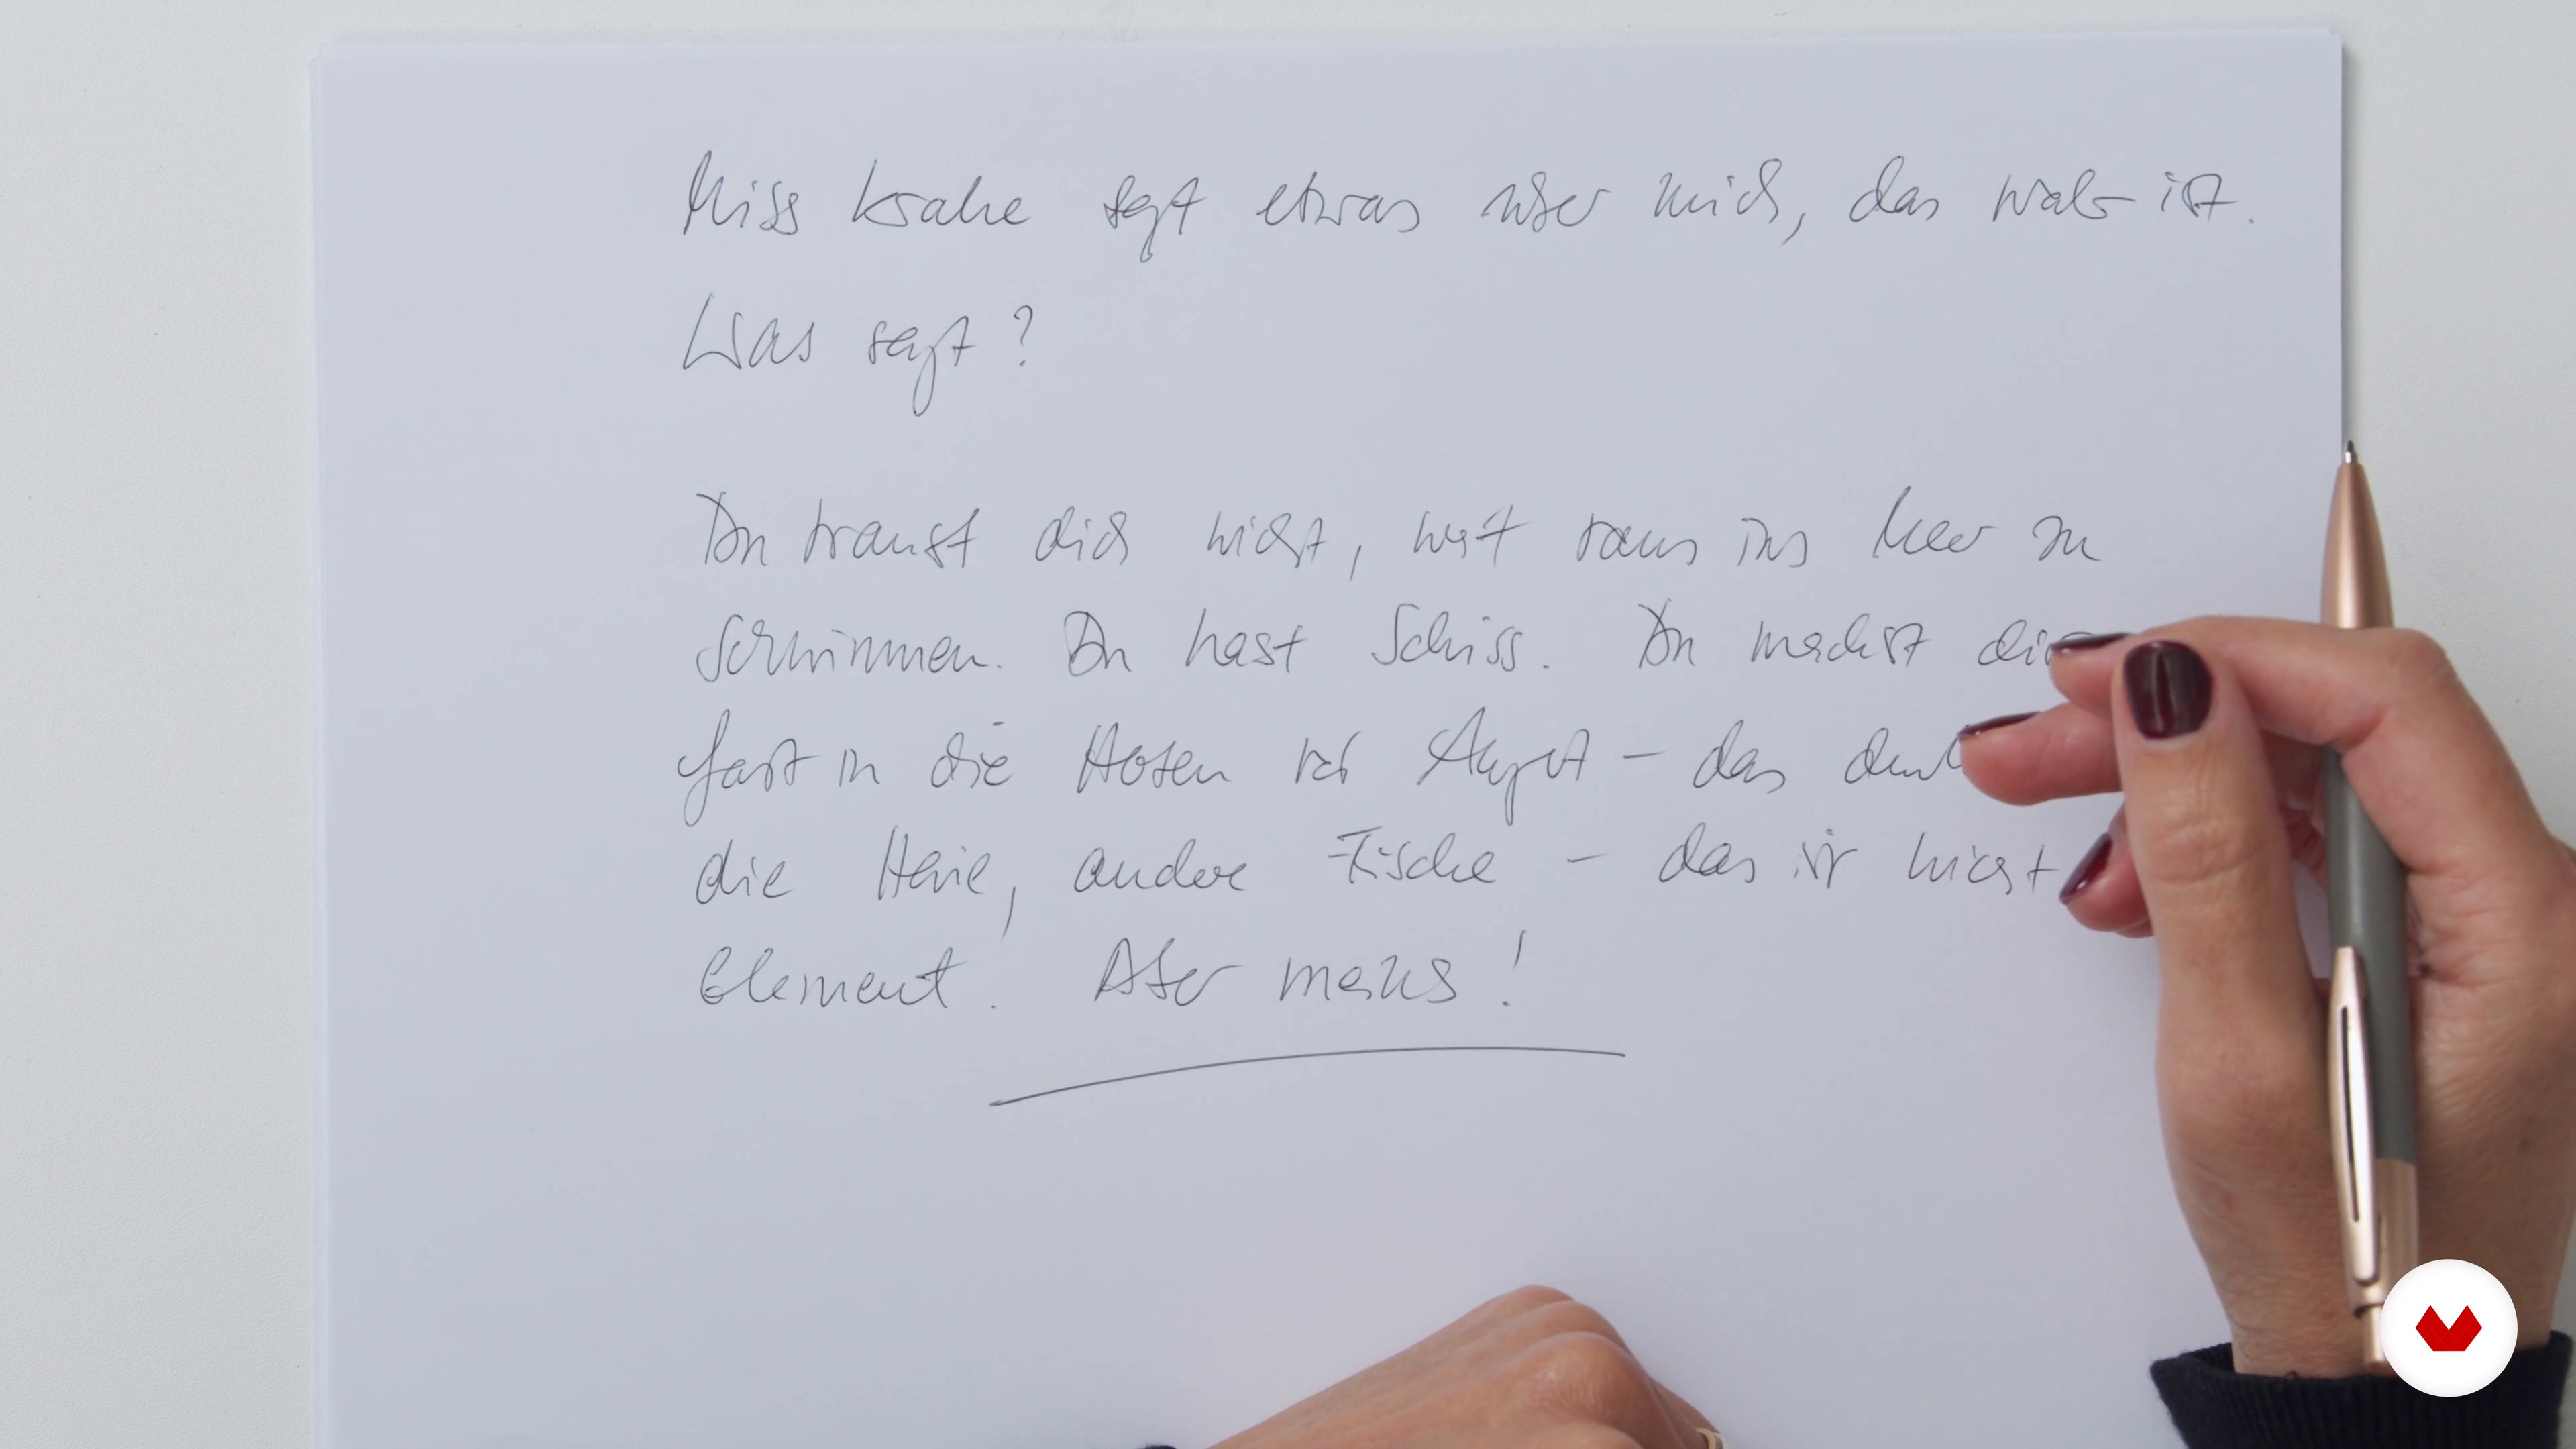 Miss Krake sagt etwas über mich, das wahr ist.
Was sagt?
Du traust dich nicht, weit raus ins Meer zu
schwimmen. Du hast Schiss. Du machst dir
fast in die Hosen vor Angst – das
die Haie, andere Fische – das ist nicht
Element. Aber meins!